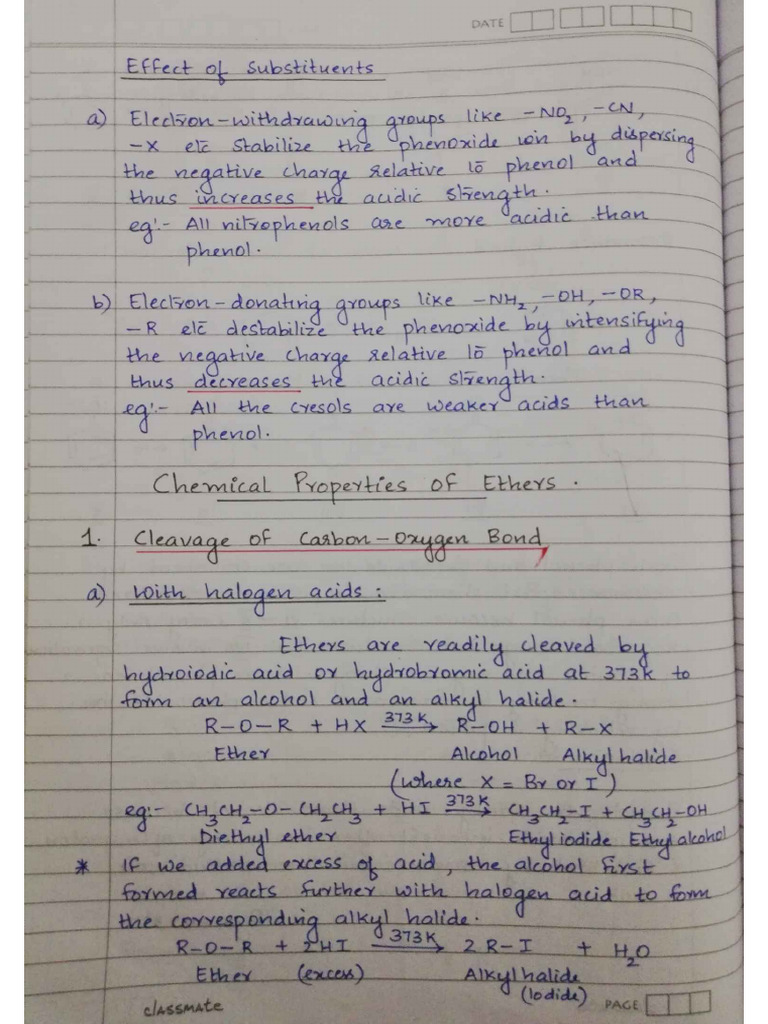 DATE
Effect of Substituents
a) Electron-withdrawing groups like -NO₂, -CN,
-X etc stabilize the phenoxide ion by dispersing
the negative charge relative to phenol and
thus increases the acidic strength.
eg:- All nitrophenols are more acidic than
phenol.
b) Electron-donating groups like -NH₂, -OH, -OR,
-R etc destabilize the phenoxide by intensifying
the negative charge relative to phenol and
thus decreases the acidic strength.
eg:- All the cresols are weaker acids than
phenol.
Chemical Properties of Ethers.
1. Cleavage of Carbon-Oxygen Bond
a) With halogen acids:
Ethers are readily cleaved by
hydroiodic acid or hydrobromic acid at 373K to
form an alcohol and an alkyl halide.
R-O-R + HX 373K→ R-OH + R-X
Ether Alcohol Alkyl halide
(where X = Br or I)
eg:- CH₃CH₂-O-CH₂CH₃ + HI 373K→ CH₃CH₂-I + CH₃CH₂-OH
Diethyl ether Ethyl iodide Ethyl alcohol
* If we added excess of acid, the alcohol first
formed reacts further with halogen acid to form
the corresponding alkyl halide.
R-O-R + 2HI 373K→ 2R-I + H₂O
Ether (excess) Alkyl halide
(Iodide)
classmate PAGE